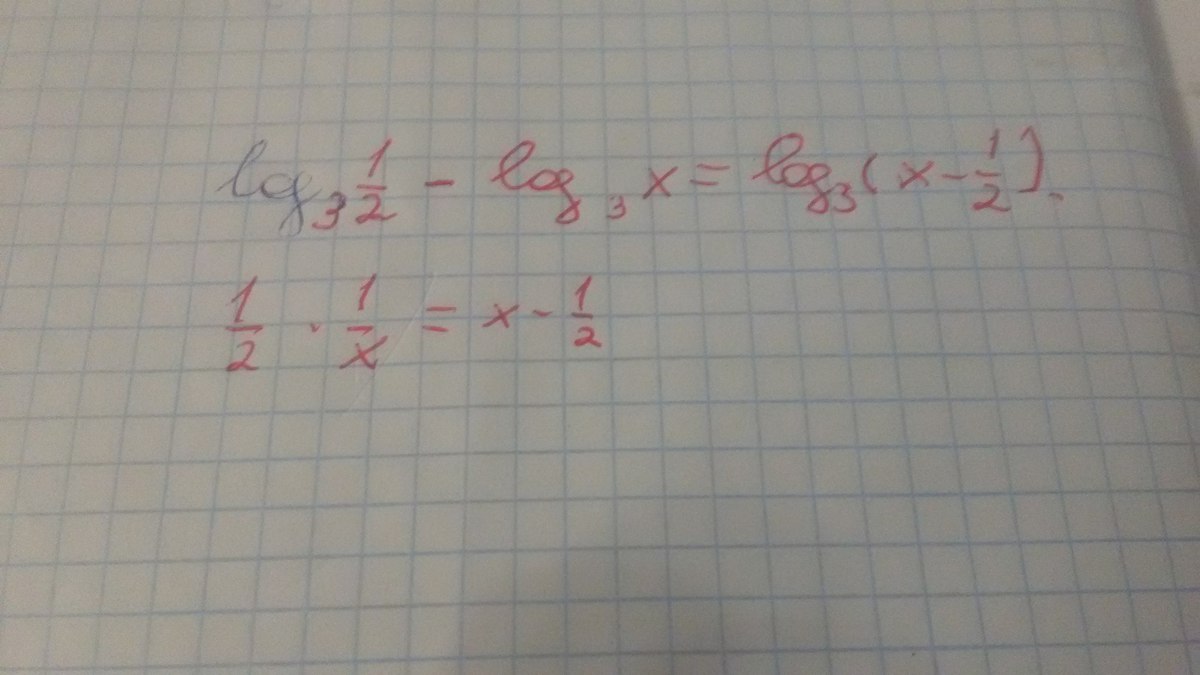 log₃ 1/2 - log₃ x = log₃(x - 1/2).
1/2 · 1/x = x - 1/2